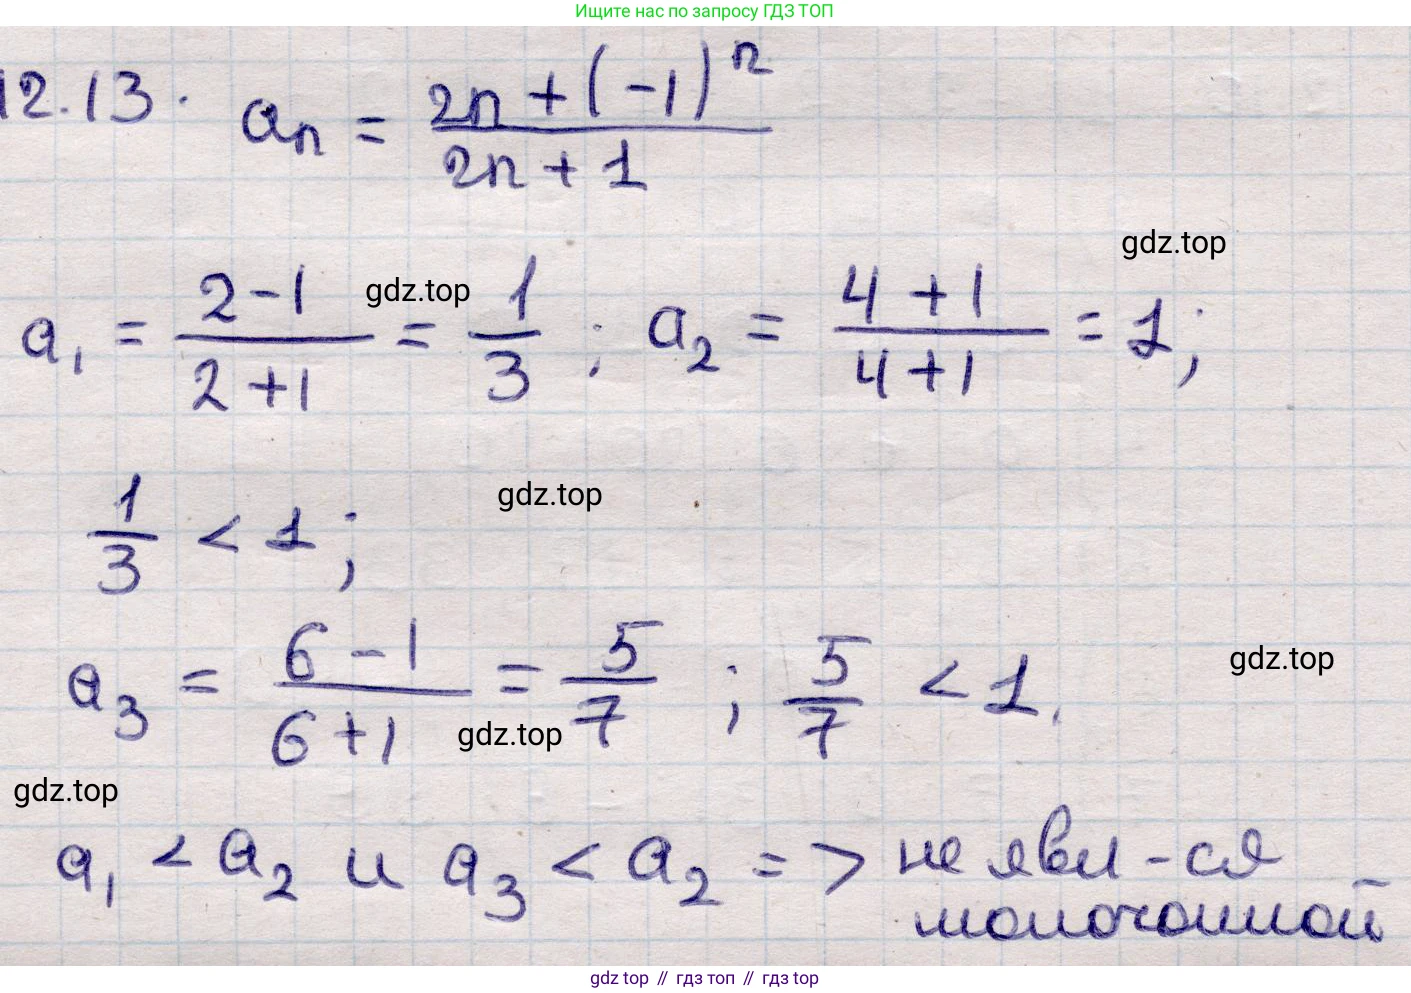 Ищите нас по запросу ГДЗ ТОП
12.13. aₙ = (2n + (-1)ⁿ)/(2n + 1)
gdz.top
a₁ = (2 - 1)/(2 + 1) = 1/3 ; a₂ = (4 + 1)/(4 + 1) = 1;
gdz.top
gdz.top
1/3 < 1;
a₃ = (6 - 1)/(6 + 1) = 5/7 ; 5/7 < 1.
gdz.top
gdz.top
gdz.top
a₁ < a₂ и a₃ < a₂ => не явл-ся
монотонной
gdz top // гдз топ // гдз top